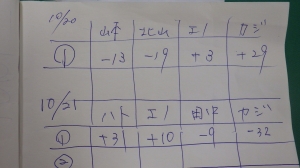 10/20
山平 北山 エノ カジ
① -13 -19 +3 +29
10/21
ハト エノ 田中 カジ
① +3 +10 -9 -32
②